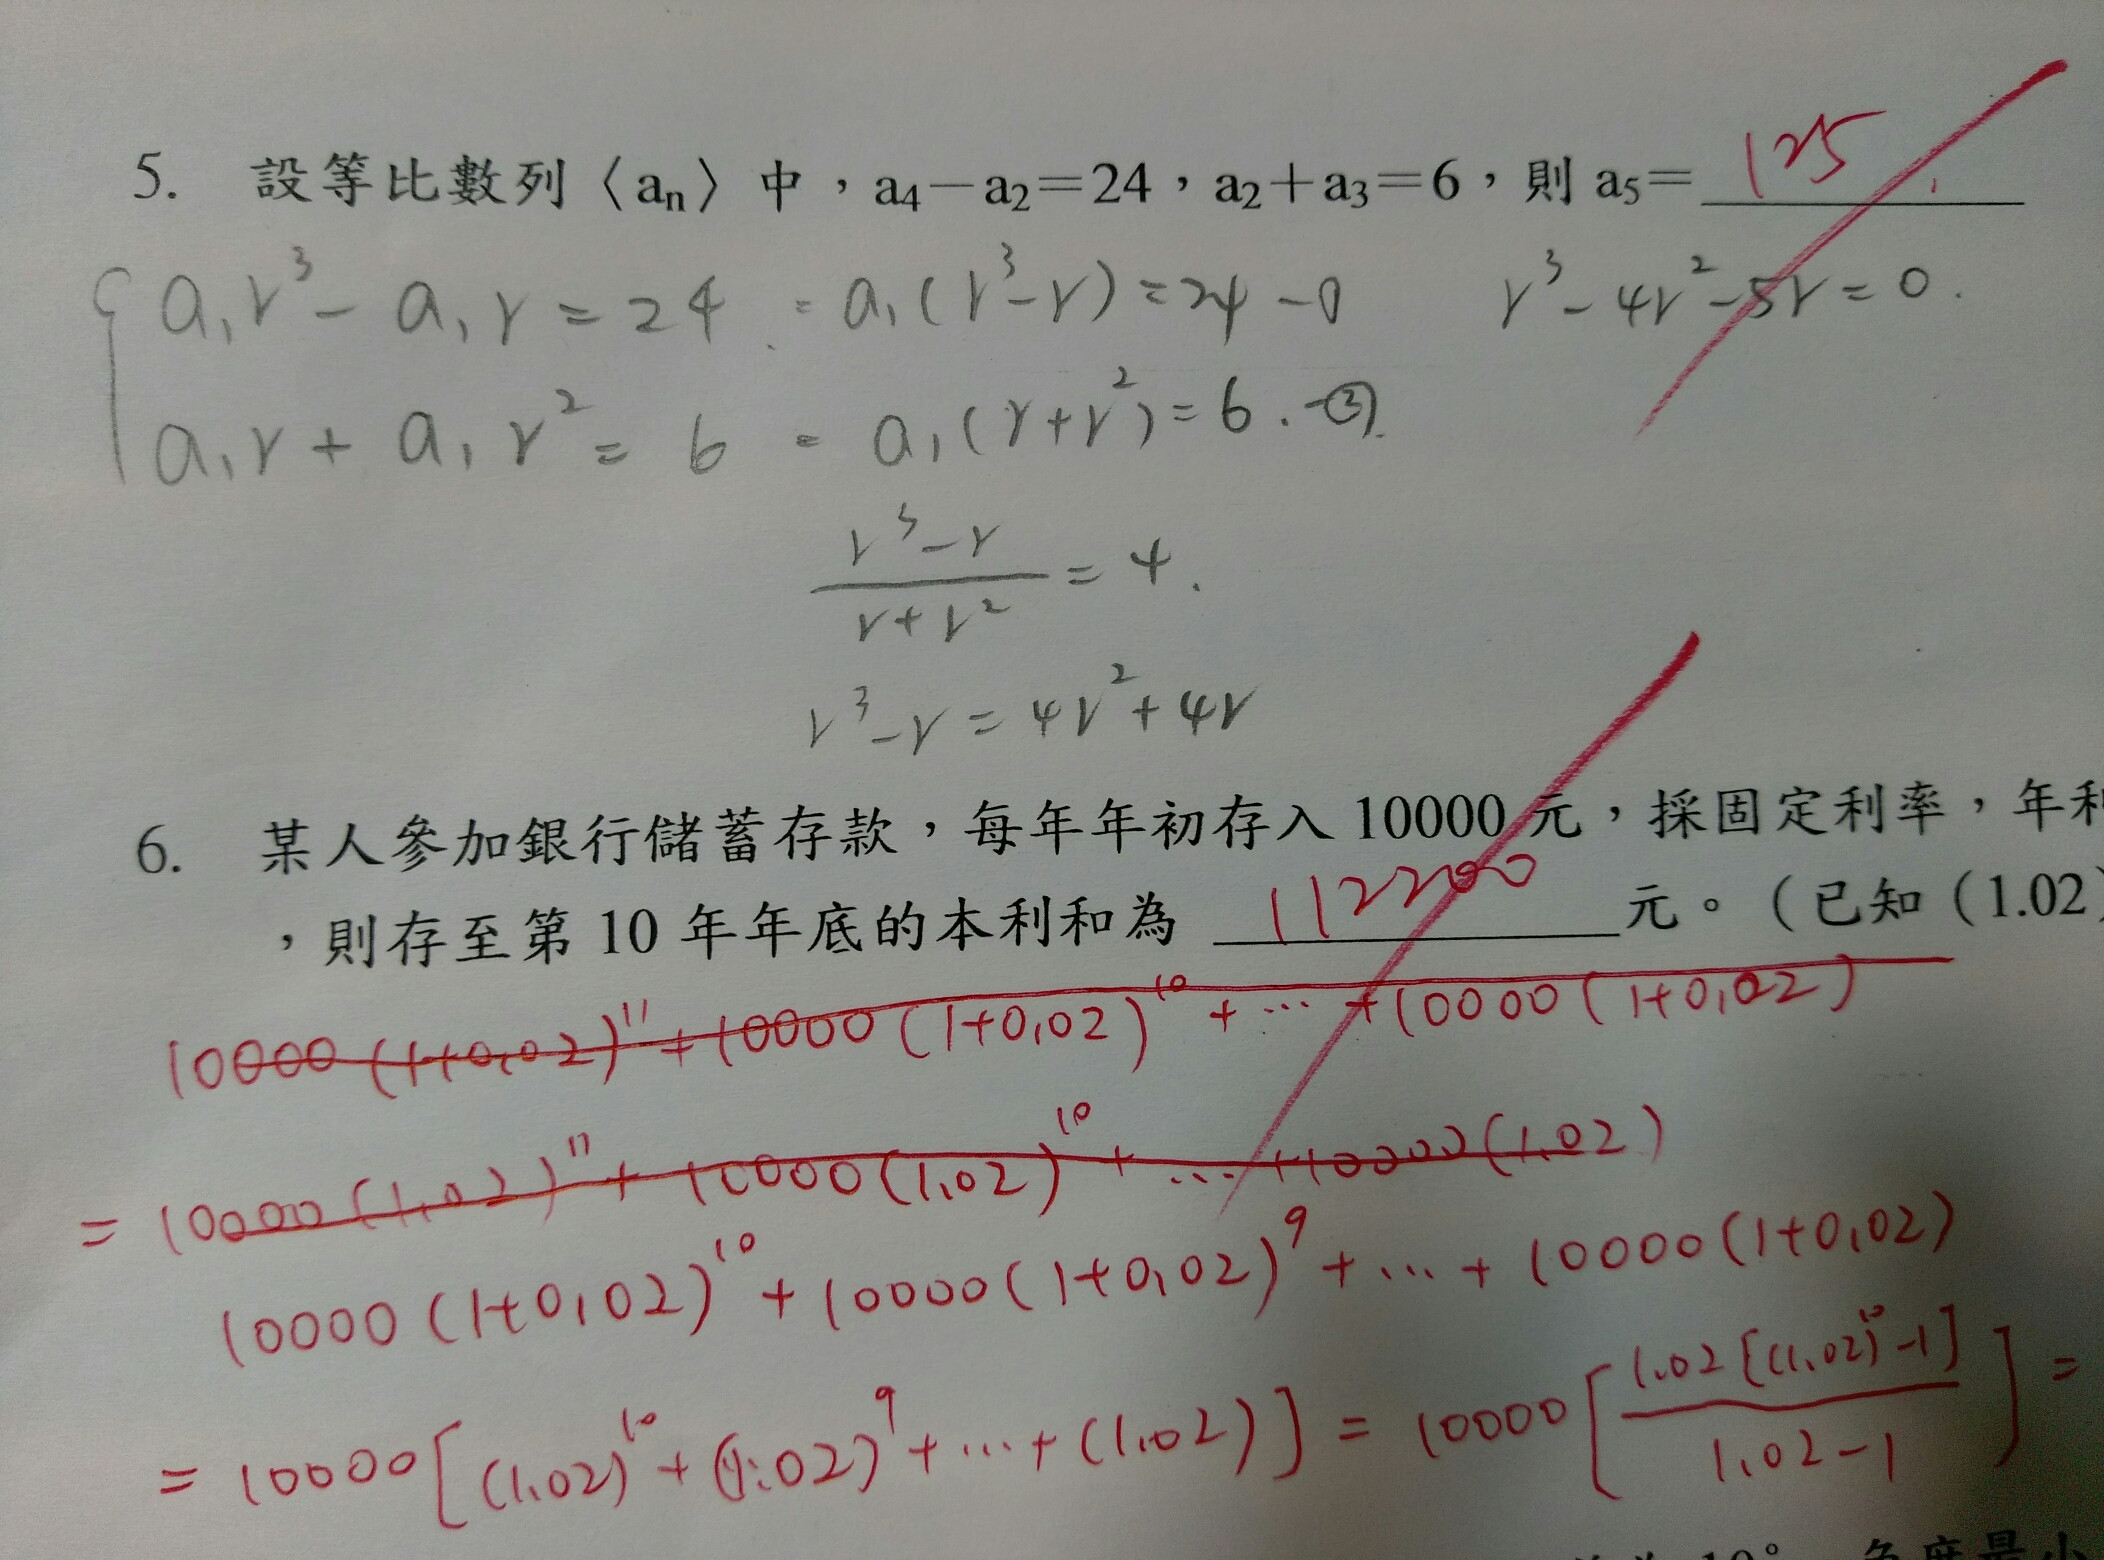 5. 設等比數列〈aₙ〉中，a₄－a₂＝24，a₂＋a₃＝6，則 a₅＝ 125
a₁r³ - a₁r = 24 = a₁(r³-r) = 24 -① r³ - 4r² - 5r = 0.
a₁r + a₁r² = 6 = a₁(r+r²) = 6. -②
r³-r
r+r² = 4.
r³-r = 4r²+4r
6. 某人參加銀行儲蓄存款，每年年初存入 10000 元，採固定利率，年利
，則存至第 10 年年底的本利和為 112200 元。（已知（1.02）
10000(1+0.02)¹¹ + 10000(1+0.02)¹⁰ + ... + 10000(1+0.02)
= 10000(1.02)¹¹ + 10000(1.02)¹⁰ + ... + 10000(1.02)
10000(1+0.02)¹⁰ + 10000(1+0.02)⁹ + ... + 10000(1+0.02)
= 10000[(1.02)¹⁰ + (1.02)⁹ + ... + (1.02)] = 10000[1.02[(1.02)¹⁰-1] / 1.02-1] =